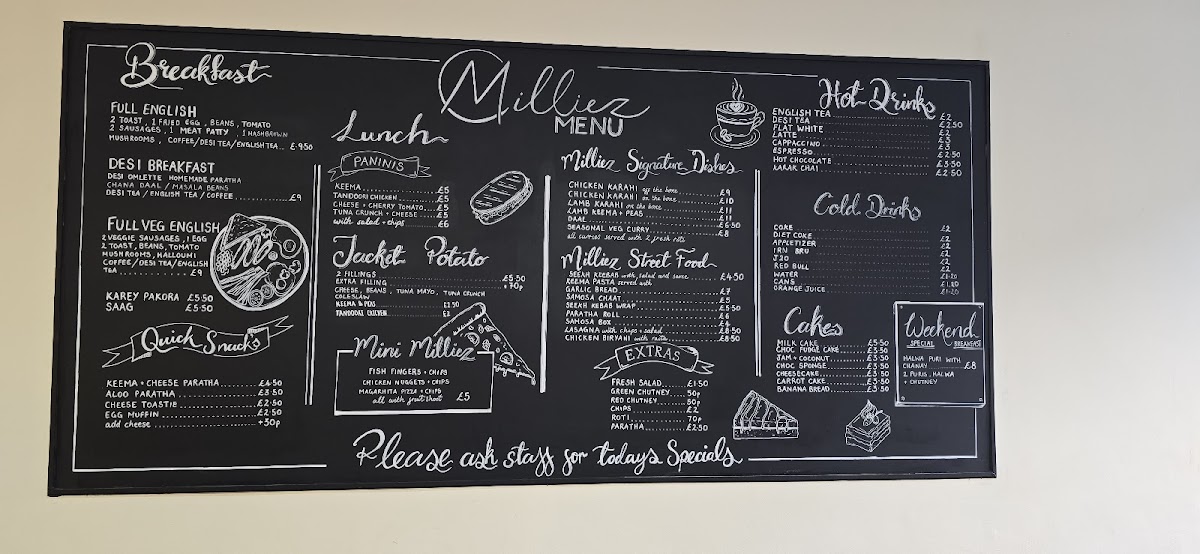 Milliez
MENU
Breakfast
FULL ENGLISH
2 TOAST, 1 FRIED EGG, BEANS, TOMATO
2 SAUSAGES, 1 MEAT PATTY, 1 HASHBROWN
MUSHROOMS, COFFEE/DESI TEA/ENGLISH TEA.. £9.50
DESI BREAKFAST
DESI OMLETTE HOMEMADE PARATHA
CHANA DAAL / MASALA BEANS
DESI TEA / ENGLISH TEA / COFFEE .......... £9
FULL VEG ENGLISH
2 VEGGIE SAUSAGES, 1 EGG
2 TOAST, BEANS, TOMATO
MUSHROOMS, HALLOUMI
COFFEE/DESI TEA/ENGLISH
TEA ............ £9
KAREY PAKORA £5.50
SAAG £5.50
Quick Snacks
KEEMA + CHEESE PARATHA .......... £4.50
ALOO PARATHA .......... £3.50
CHEESE TOASTIE .......... £2.50
EGG MUFFIN .......... £2.50
add cheese .......... +50p
Lunch
PANINIS
KEEMA .......... £5
TANDOORI CHICKEN .......... £5
CHEESE + CHERRY TOMATO .... £5
TUNA CRUNCH + CHEESE .... £5
with salad + chips .... £6
Jacket Potato
2 FILLINGS .......... £5.50
EXTRA FILLING .......... +70p
CHEESE, BEANS, TUNA MAYO, TUNA CRUNCH
COLESLAW
KEEMA & PEAS £2.50
TANDOORI CHICKEN £2
Mini Milliez
FISH FINGERS + CHIPS
CHICKEN NUGGETS + CHIPS
MAGARHITA PIZZA + CHIPS
all with fruitshoot £5
Milliez Signature Dishes
CHICKEN KARAHI off the bone .......... £9
CHICKEN KARAHI on the bone .......... £10
LAMB KARAHI on the bone .......... £11
LAMB KEEMA + PEAS .......... £11
DAAL .......... £6.50
SEASONAL VEG CURRY .......... £8
all curries served with 2 fresh rotis
Milliez Street Food
SEEKH KEEBAB with salad and sauce .... £4.50
KEEMA PASTA served with
GARLIC BREAD .......... £7
SAMOSA CHAAT .......... £5
SEEKH KEBAB WRAP .......... £5.50
PARATHA ROLL .......... £6
SAMOSA BOX .......... £6
LASAGNA with chips + salad .......... £8.50
CHICKEN BIRYANI with raita .......... £8.50
EXTRAS
FRESH SALAD .......... £1.50
GREEN CHUTNEY .......... 50p
RED CHUTNEY .......... 50p
CHIPS .......... £2
ROTI .......... 70p
PARATHA .......... £2.50
Hot Drinks
ENGLISH TEA .......... £2
DESI TEA .......... £2.50
FLAT WHITE .......... £2
LATTE .......... £3
CAPPACCINO .......... £3
ESPRESSO .......... £2.50
HOT CHOCOLATE .......... £3.50
KARAK CHAI .......... £2.50
Cold Drinks
COKE .......... £2
DIET COKE .......... £2
APPLETIZER .......... £2
IRN BRU .......... £2
J20 .......... £2
RED BULL .......... £2
WATER .......... £1.20
CANS .......... £1.20
ORANGE JUICE .......... £1.20
Cakes
MILK CAKE .......... £5.50
CHOC FUDGE CAKE .......... £3.50
JAM + COCONUT .......... £3.50
CHOC SPONGE .......... £3.50
CHEESECAKE .......... £3.50
CARROT CAKE .......... £3.50
BANANA BREAD .......... £3.50
Weekend
SPECIAL BREAKFAST
HALWA PURI WITH
CHANAY £8
2 PURIS, HALWA
+ CHUTNEY
Please ask staff for todays Specials